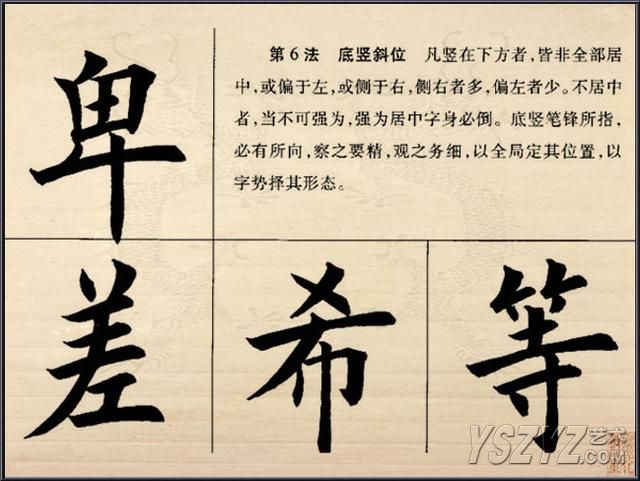 第6法 底竖斜位 凡竖在下方者,皆非全部居
中,或偏于左,或侧于右,侧右者多,偏左者少。不居中
者,当不可强为,强为居中字身必倒。底竖笔锋所指,
必有所向,察之要精,观之务细,以全局定其位置,以
字势择其形态。
卑
差 希 等
YSZYZ艺术
.COM